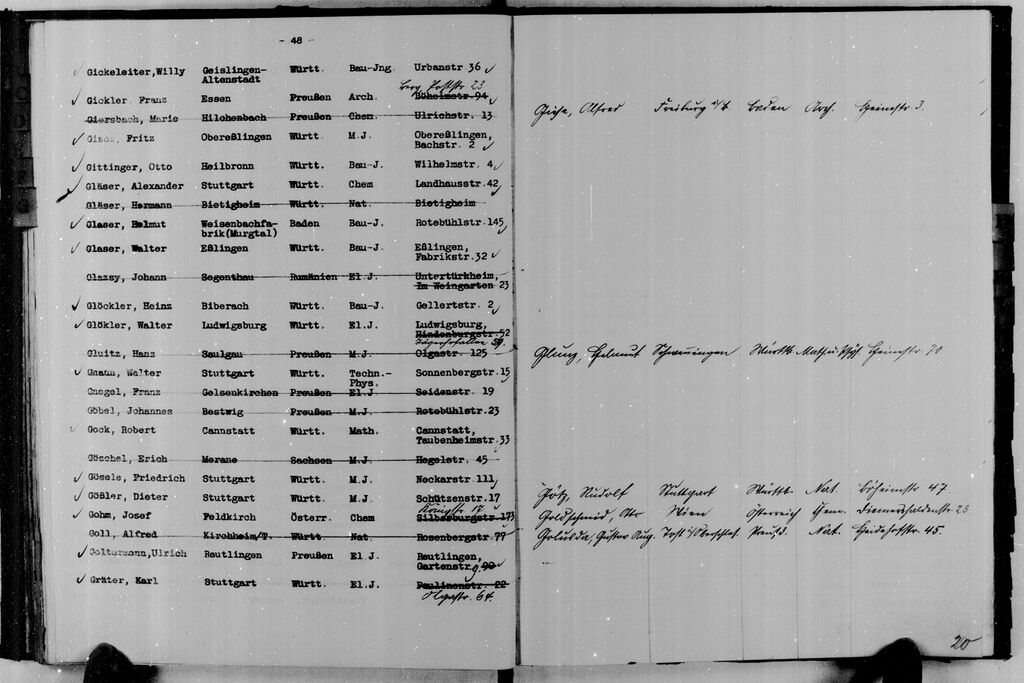 - 48 -
Gickeleiter, Willy Geislingen- Württ. Bau-Jng. Urbanstr 36
Altenstadt
Berg, Poststr 23
Gickler Franz Essen Preußen Arch. Böheimstr. 94
Giersbach, Marie Hilchenbach Preußen Chem. Ulrichstr. 13
Fritz Obereßlingen Württ. M.J. Obereßlingen,
Bachstr. 2
Gittinger, Otto Heilbronn Württ. Bau-J. Wilhelmstr. 4
Gläser, Alexander Stuttgart Württ. Chem Landhausstr. 42
Gläser, Hermann Bietigheim Württ. Nat. Bietigheim
Glaser, Helmut Weisenbachfa- Baden Bau-J. Rotebühlstr. 145
brik(Murgtal)
Glaser, Walter Eßlingen Württ. Bau-J. Eßlingen,
Fabrikstr. 32
Glazsy, Johann Segenthau Rumänien El.J. Untertürkheim,
Im Weingarten 23
Glöckler, Heinz Biberach Württ. Bau-J. Gellertstr. 2
Glökler, Walter Ludwigsburg Württ. El.J. Ludwigsburg,
Hindenburgstr. 52
Gluitz, Hans Saulgau Preußen M.J. Olgastr. 125
Gmann, Walter Stuttgart Württ. Techn.- Sonnenbergstr. 15
Phys.
Gnagel, Franz Gelsenkirchen Preußen El.J Seidenstr. 19
Göbel, Johannes Bestwig Preußen M.J. Rotebühlstr. 23
Gock, Robert Cannstatt Württ. Math. Cannstatt,
Taubenheimstr. 33
Göschel, Erich Merane Sachsen M.J. Hegelstr. 45
Gösele, Friedrich Stuttgart Württ. M.J. Neckarstr. 111
Gößler, Dieter Stuttgart Württ. M.J. Schützenstr. 17
Königstr 17
Gohm, Josef Feldkirch Österr. Chem Silberburgstr. 173
Goll, Alfred Kirchheim/T. Württ Nat. Rosenbergstr. 77
Goltermann, Ulrich Reutlingen Preußen El J. Reutlingen,
Gartenstr. 90
9.
Gräter, Karl Stuttgart Württ. El.J. Paulinenstr. 22
Olgastr. 64.
Alfred Freiburg Baden Arch. Heimstr. 3.
Helmut Schwenningen Württb. 70
Götz, Rudolf Stuttgart Württb. Nat. Böheimstr 47
Goldschmid, Otto Wien Österreich Chem. Diemershaldenstr. 23
Gustav Aug. Nat. 45.
20